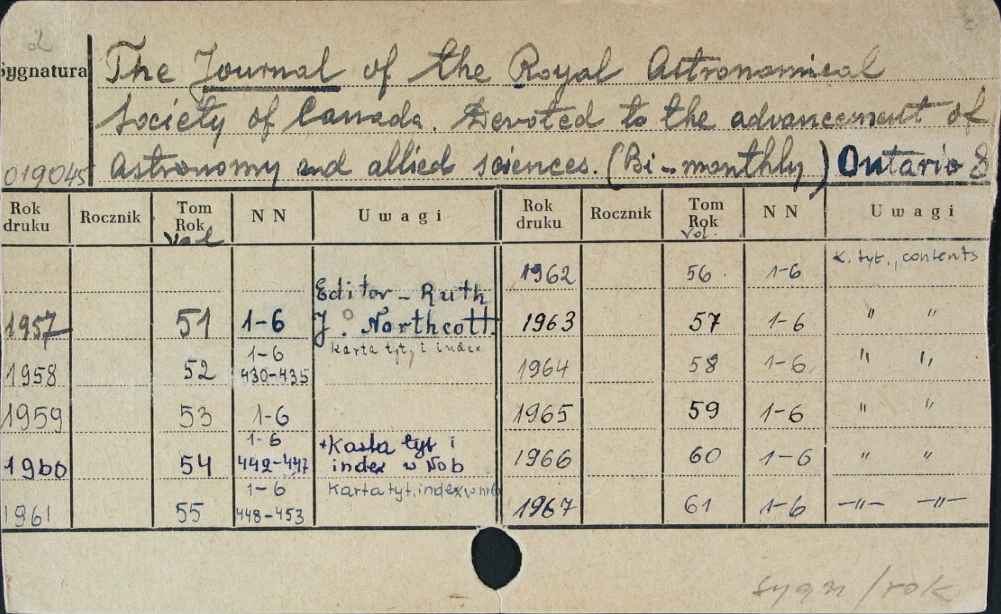 2
Sygnatura
019045
The Journal of the Royal Astronomical
Society of Canada. Devoted to the advancement of
astronomy and allied sciences. (Bi-monthly) Ontario
Rok druku Rocznik Tom Rok Vol NN Uwagi
Editor - Ruth
1957 51 1-6 J. Northcott
karta tyt, i index
1958 52 1-6 430-435
1959 53 1-6
1960 54 1-6 442-447 +Karta tyt i index w No6
1961 55 1-6 448-453 Karta tyt. index w
Rok druku Rocznik Tom Rok Vol. NN Uwagi
1962 56 1-6 k. tyt., contents
1963 57 1-6 " "
1964 58 1-6 " "
1965 59 1-6 " "
1966 60 1-6 " "
1967 61 1-6 -"- -"-
sygn/rok